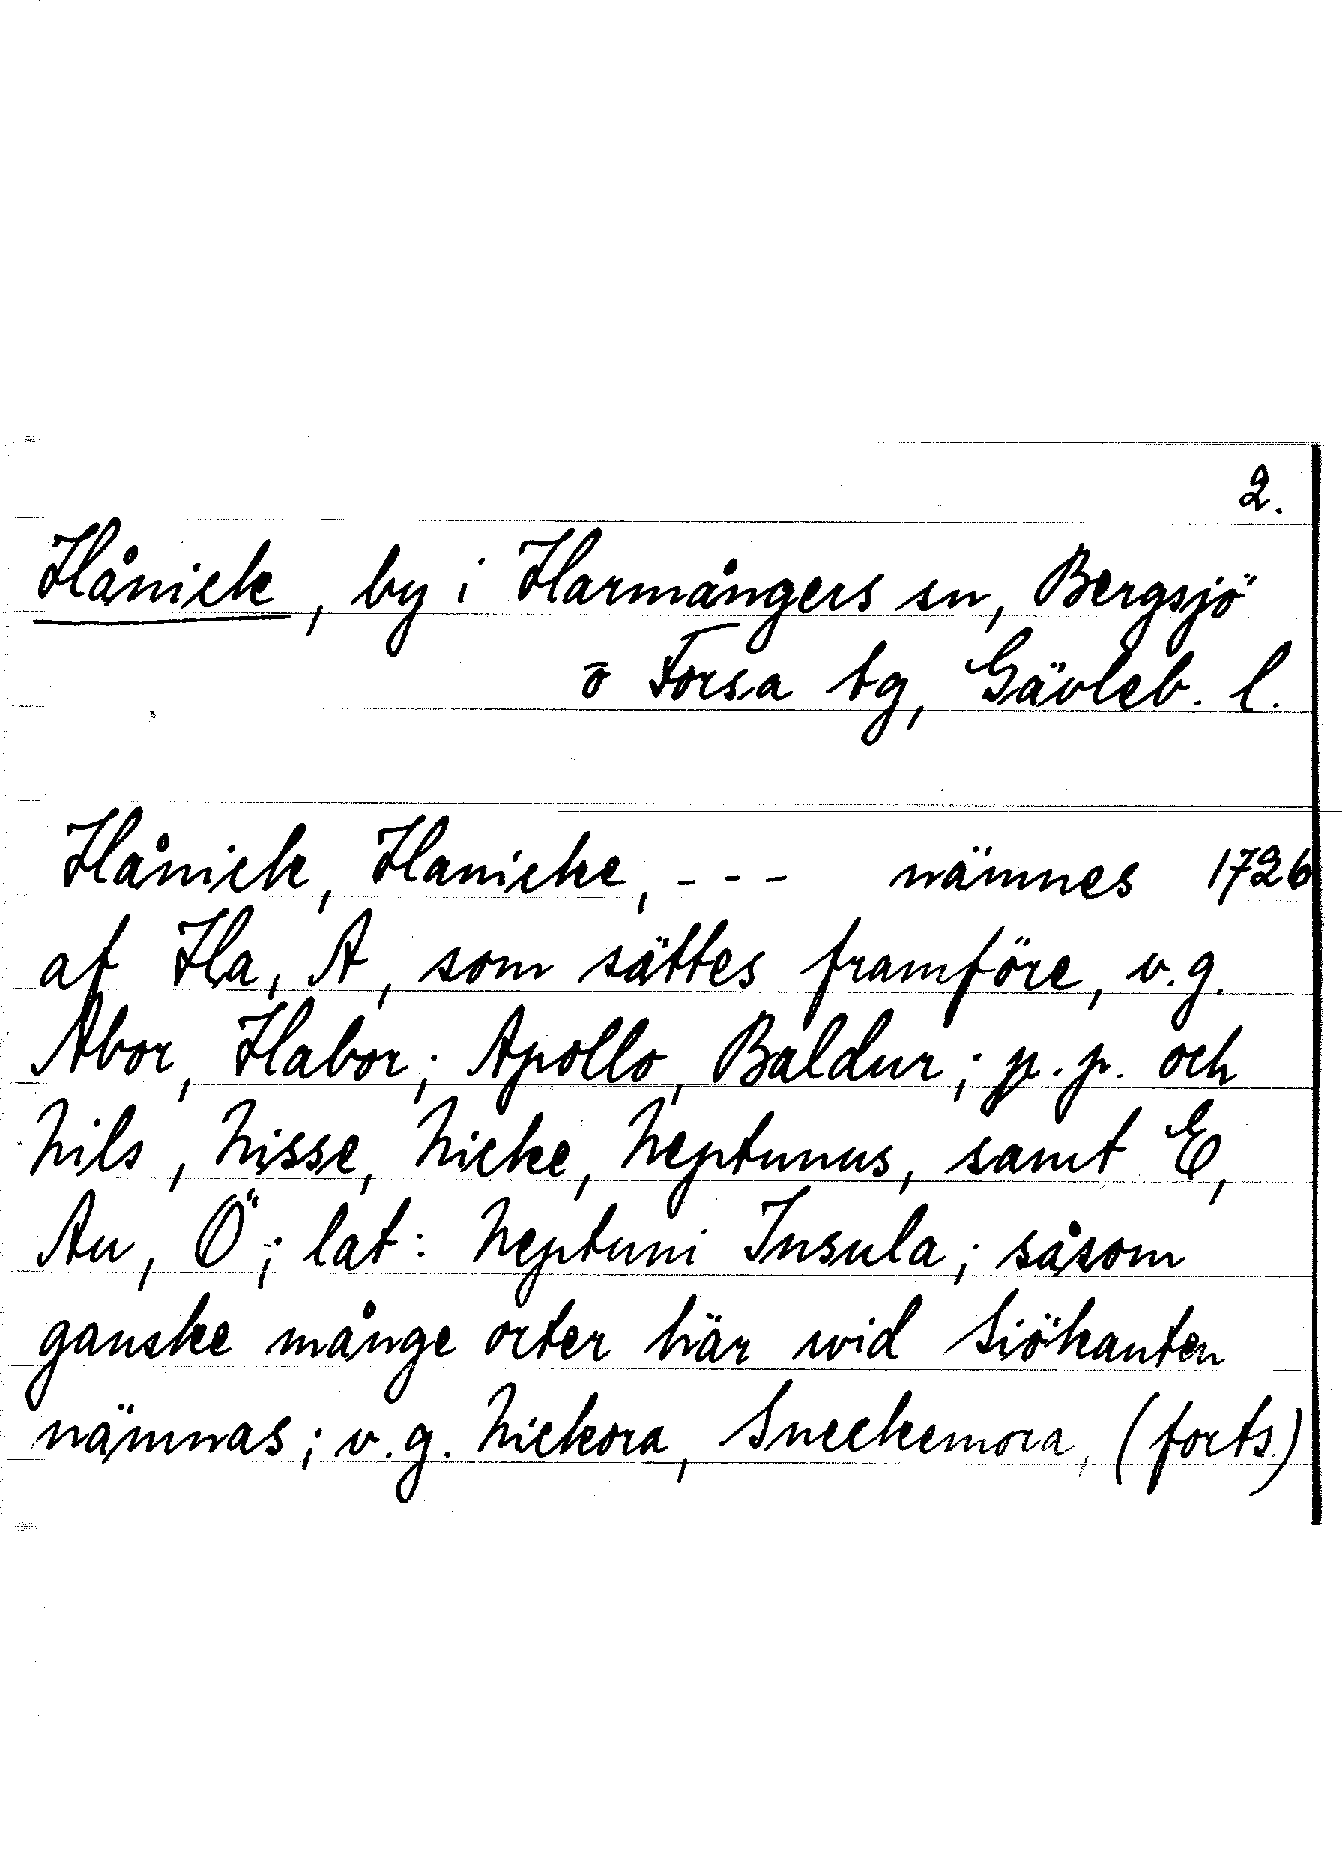 2.
Hånick, by i Harmångers sn, Bergsjö
o Forsa tg, Gävleb. l.
Hånick, Hanicke, - - - nämnes 1726
af Ha, A, som sättes framföre, v.g.
Abor, Habor; Apollo, Baldur; p.p. och
Nils, Nisse, Nicke, Neptunus, samt E,
Au, Ö; lat: Neptuni Insula; såsom
ganske månge orter här wid Siökanten
nämnas; v.g. Nickora, Sneckemora, (forts.)